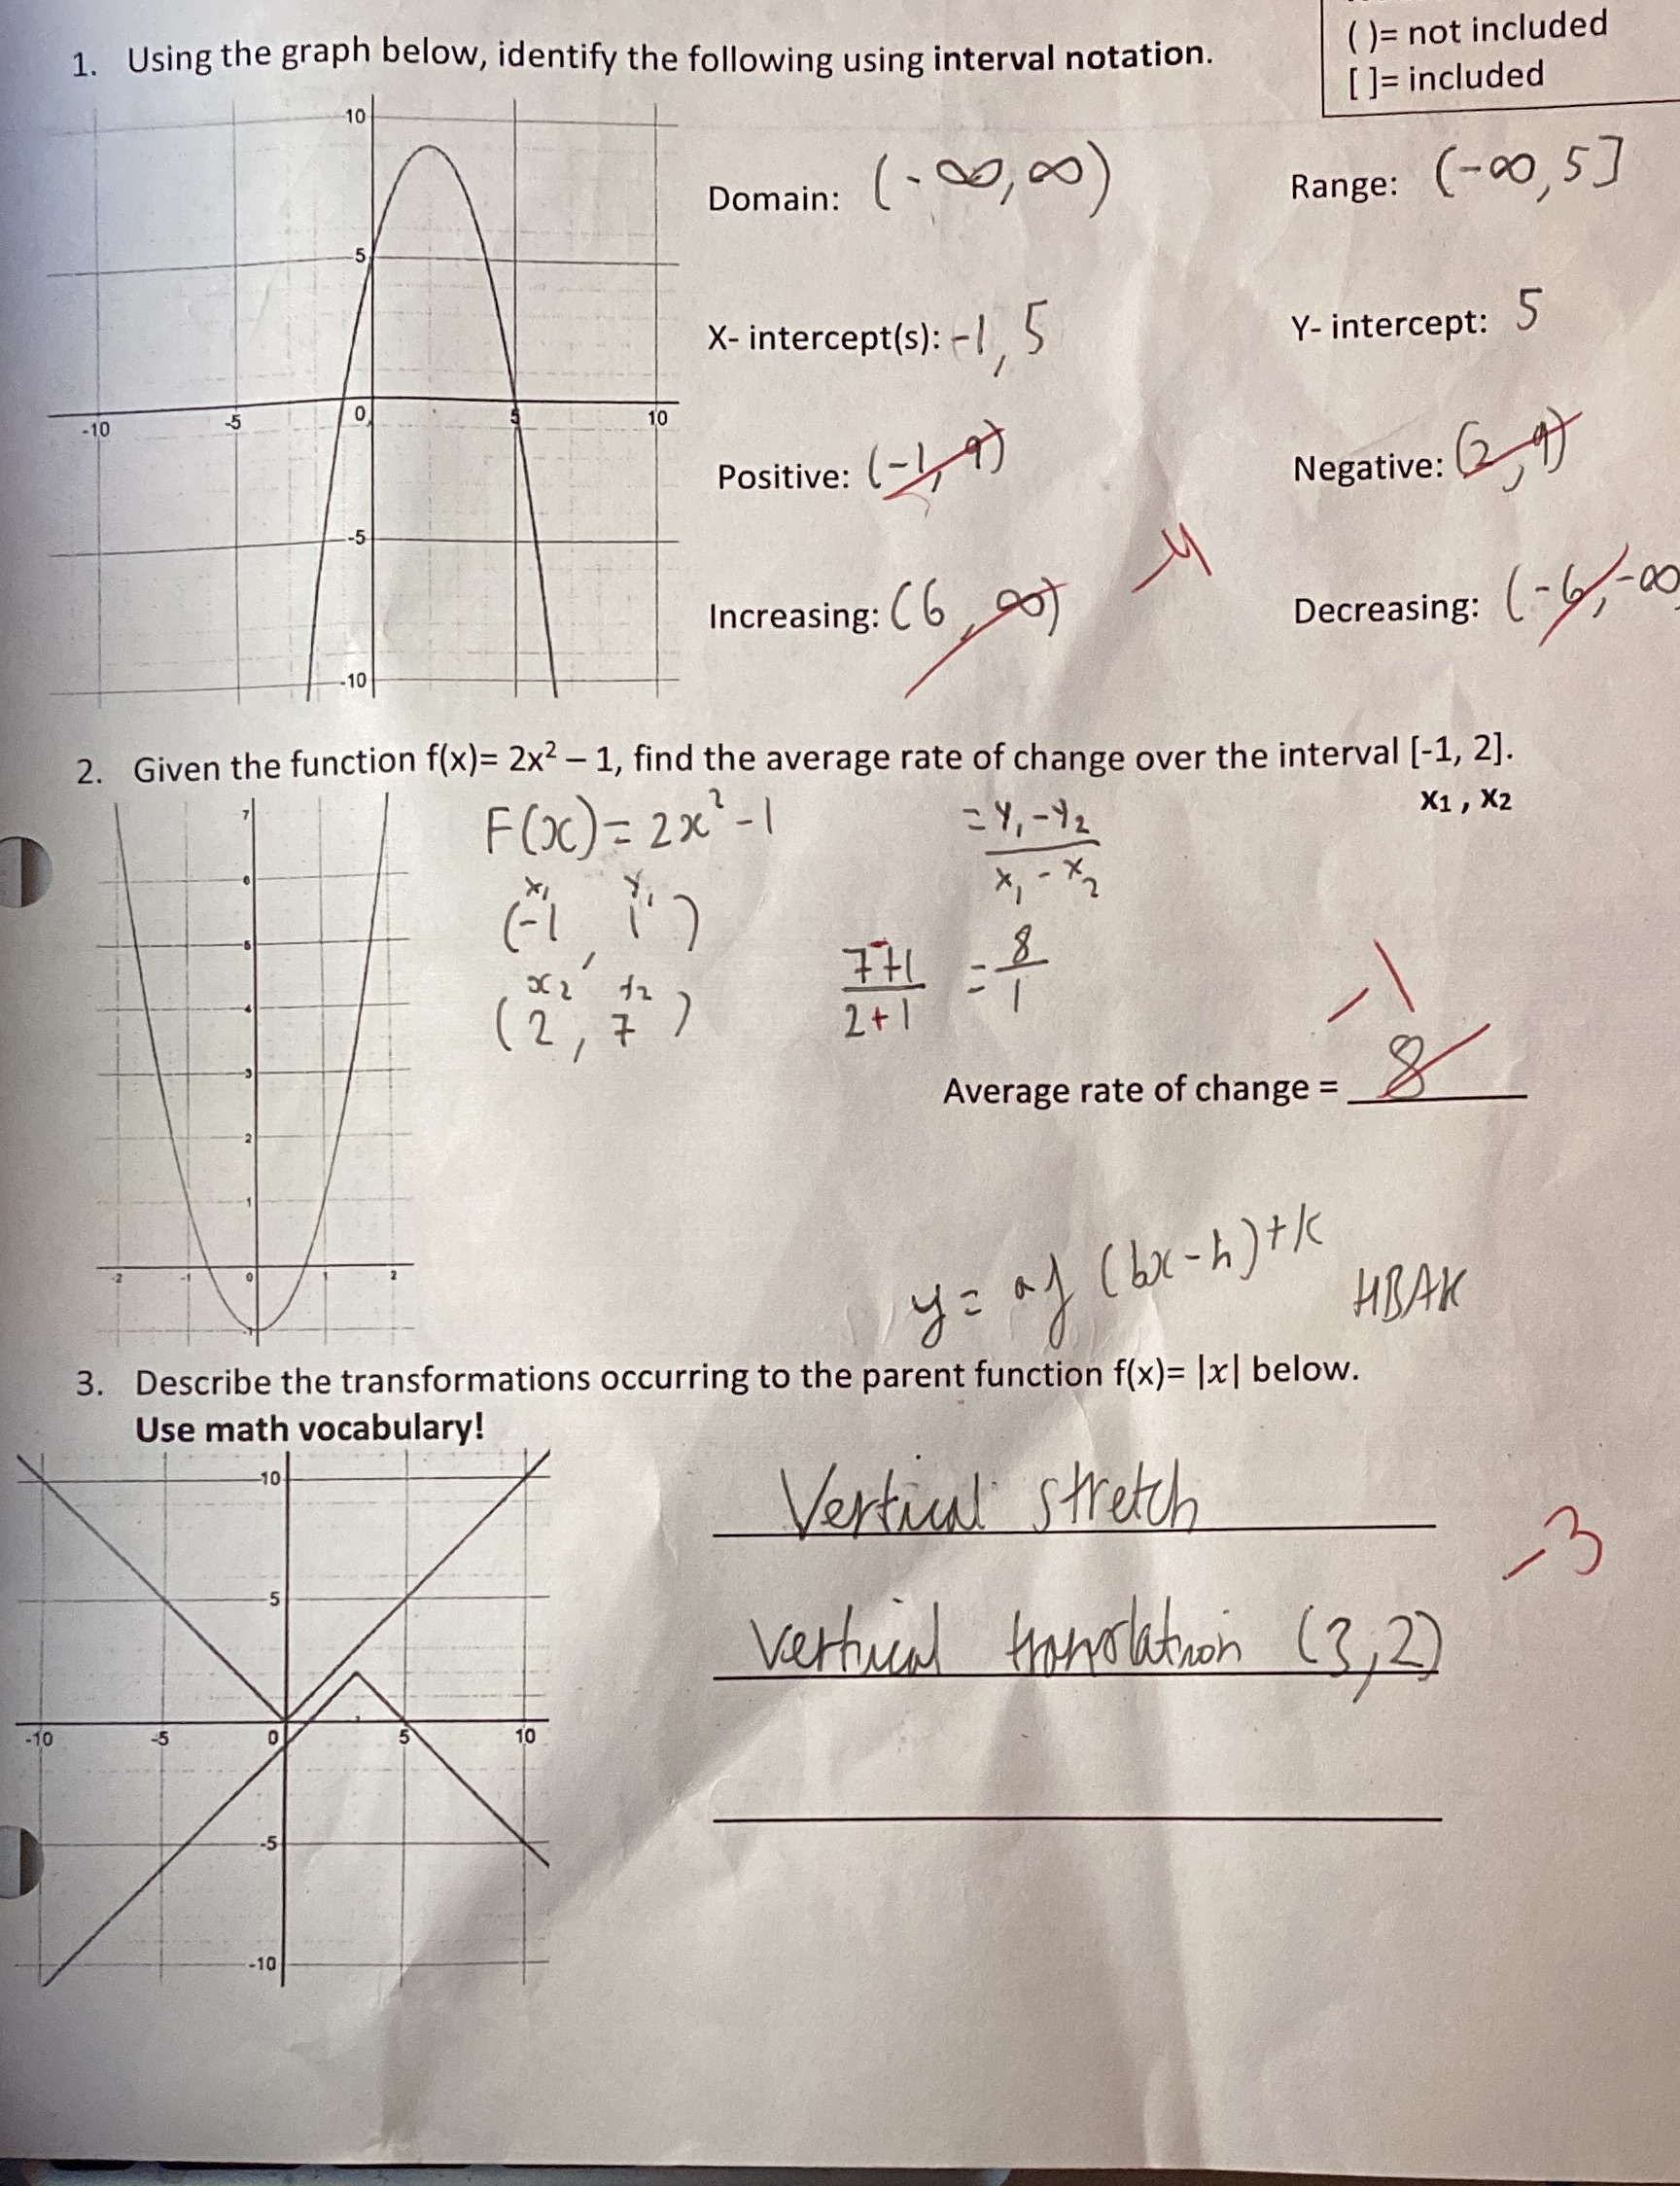 ( )= not included
[ ]= included
1. Using the graph below, identify the following using interval notation.
10
5
0
-10
-5
5
10
-5
-10
Domain: (-∞,∞)
Range: (-∞,5]
X- intercept(s): -1, 5
Y- intercept: 5
Positive: (-1, 9)
Negative: (2, 9)
-4
Increasing: (6, ∞)
Decreasing: (-6, -∞
2. Given the function f(x)= 2x² – 1, find the average rate of change over the interval [-1, 2].
x1 , x2
7
6
5
4
3
2
1
-2
-1
0
1
2
-1
F(x) = 2x² - 1
x₁ y₁
(-1, 1)
x₂ y₂
(2, 7)
= y₁ - y₂
x₁ - x₂
7+1
2+1
= 8
1
-1
Average rate of change = 8
y = af (bx-h)+k
HBAK
3. Describe the transformations occurring to the parent function f(x)= |x| below.
Use math vocabulary!
10
5
-10
-5
0
5
10
-5
-10
Vertical stretch
-3
Vertical translation (3,2)